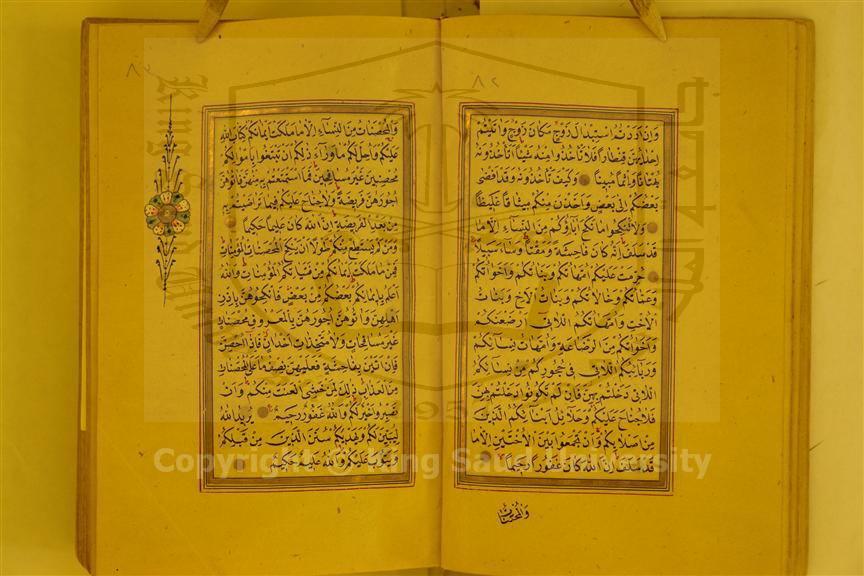 ٨٢
وَاِنْ اَرَدْتُمُ اسْتِبْدَالَ زَوْجٍ مَكَانَ زَوْجٍ وَاٰتَيْتُمْ
اِحْدٰيهُنَّ قِنْطَارًا فَلَا تَأْخُذُوا مِنْهُ شَيْئًا اَتَأْخُذُونَهُ
بُهْتَانًا وَاِثْمًا مُبِينًا وَكَيْفَ تَأْخُذُونَهُ وَقَدْ اَفْضٰى
بَعْضُكُمْ اِلٰى بَعْضٍ وَاَخَذْنَ مِنْكُمْ مِيثَاقًا غَلِيظًا
وَلَا تَنْكِحُوا مَا نَكَحَ اٰبَاؤُكُمْ مِنَ النِّسَاءِ اِلَّا مَا
قَدْ سَلَفَ اِنَّهُ كَانَ فَاحِشَةً وَمَقْتًا وَسَاءَ سَبِيلًا
حُرِّمَتْ عَلَيْكُمْ اُمَّهَاتُكُمْ وَبَنَاتُكُمْ وَاَخَوَاتُكُمْ
وَعَمَّاتُكُمْ وَخَالَاتُكُمْ وَبَنَاتُ الْاَخِ وَبَنَاتُ
الْاُخْتِ وَاُمَّهَاتُكُمُ اللَّاتِي اَرْضَعْنَكُمْ
وَاَخَوَاتُكُمْ مِنَ الرَّضَاعَةِ وَاُمَّهَاتُ نِسَائِكُمْ
وَرَبَائِبُكُمُ اللَّاتِي فِي حُجُورِكُمْ مِنْ نِسَائِكُمُ
اللَّاتِي دَخَلْتُمْ بِهِنَّ فَاِنْ لَمْ تَكُونُوا دَخَلْتُمْ بِهِنَّ
فَلَا جُنَاحَ عَلَيْكُمْ وَحَلَائِلُ اَبْنَائِكُمُ الَّذِينَ
مِنْ اَصْلَابِكُمْ وَاَنْ تَجْمَعُوا بَيْنَ الْاُخْتَيْنِ اِلَّا مَا
قَدْ سَلَفَ اِنَّ اللّٰهَ كَانَ غَفُورًا رَحِيمًا
وَالْمُحْصَنَاتُ
وَالْمُحْصَنَاتُ مِنَ النِّسَاءِ اِلَّا مَا مَلَكَتْ اَيْمَانُكُمْ كِتَابَ اللّٰهِ
عَلَيْكُمْ وَاُحِلَّ لَكُمْ مَا وَرَاءَ ذٰلِكُمْ اَنْ تَبْتَغُوا بِاَمْوَالِكُمْ
مُحْصِنِينَ غَيْرَ مُسَافِحِينَ فَمَا اسْتَمْتَعْتُمْ بِهِ مِنْهُنَّ فَاٰتُوهُنَّ
اُجُورَهُنَّ فَرِيضَةً وَلَا جُنَاحَ عَلَيْكُمْ فِيمَا تَرَاضَيْتُمْ بِهِ
مِنْ بَعْدِ الْفَرِيضَةِ اِنَّ اللّٰهَ كَانَ عَلِيمًا حَكِيمًا
وَمَنْ لَمْ يَسْتَطِعْ مِنْكُمْ طَوْلًا اَنْ يَنْكِحَ الْمُحْصَنَاتِ الْمُؤْمِنَاتِ
فَمِنْ مَا مَلَكَتْ اَيْمَانُكُمْ مِنْ فَتَيَاتِكُمُ الْمُؤْمِنَاتِ وَاللّٰهُ
اَعْلَمُ بِاِيمَانِكُمْ بَعْضُكُمْ مِنْ بَعْضٍ فَانْكِحُوهُنَّ بِاِذْنِ
اَهْلِهِنَّ وَاٰتُوهُنَّ اُجُورَهُنَّ بِالْمَعْرُوفِ مُحْصَنَاتٍ
غَيْرَ مُسَافِحَاتٍ وَلَا مُتَّخِذَاتِ اَخْدَانٍ فَاِذَا اُحْصِنَّ
فَاِنْ اَتَيْنَ بِفَاحِشَةٍ فَعَلَيْهِنَّ نِصْفُ مَا عَلَى الْمُحْصَنَاتِ
مِنَ الْعَذَابِ ذٰلِكَ لِمَنْ خَشِيَ الْعَنَتَ مِنْكُمْ وَاَنْ
تَصْبِرُوا خَيْرٌ لَكُمْ وَاللّٰهُ غَفُورٌ رَحِيمٌ يُرِيدُ اللّٰهُ
لِيُبَيِّنَ لَكُمْ وَيَهْدِيَكُمْ سُنَنَ الَّذِينَ مِنْ قَبْلِكُمْ
وَيَتُوبَ عَلَيْكُمْ وَاللّٰهُ عَلِيمٌ حَكِيمٌ
Copyright © King Saud University